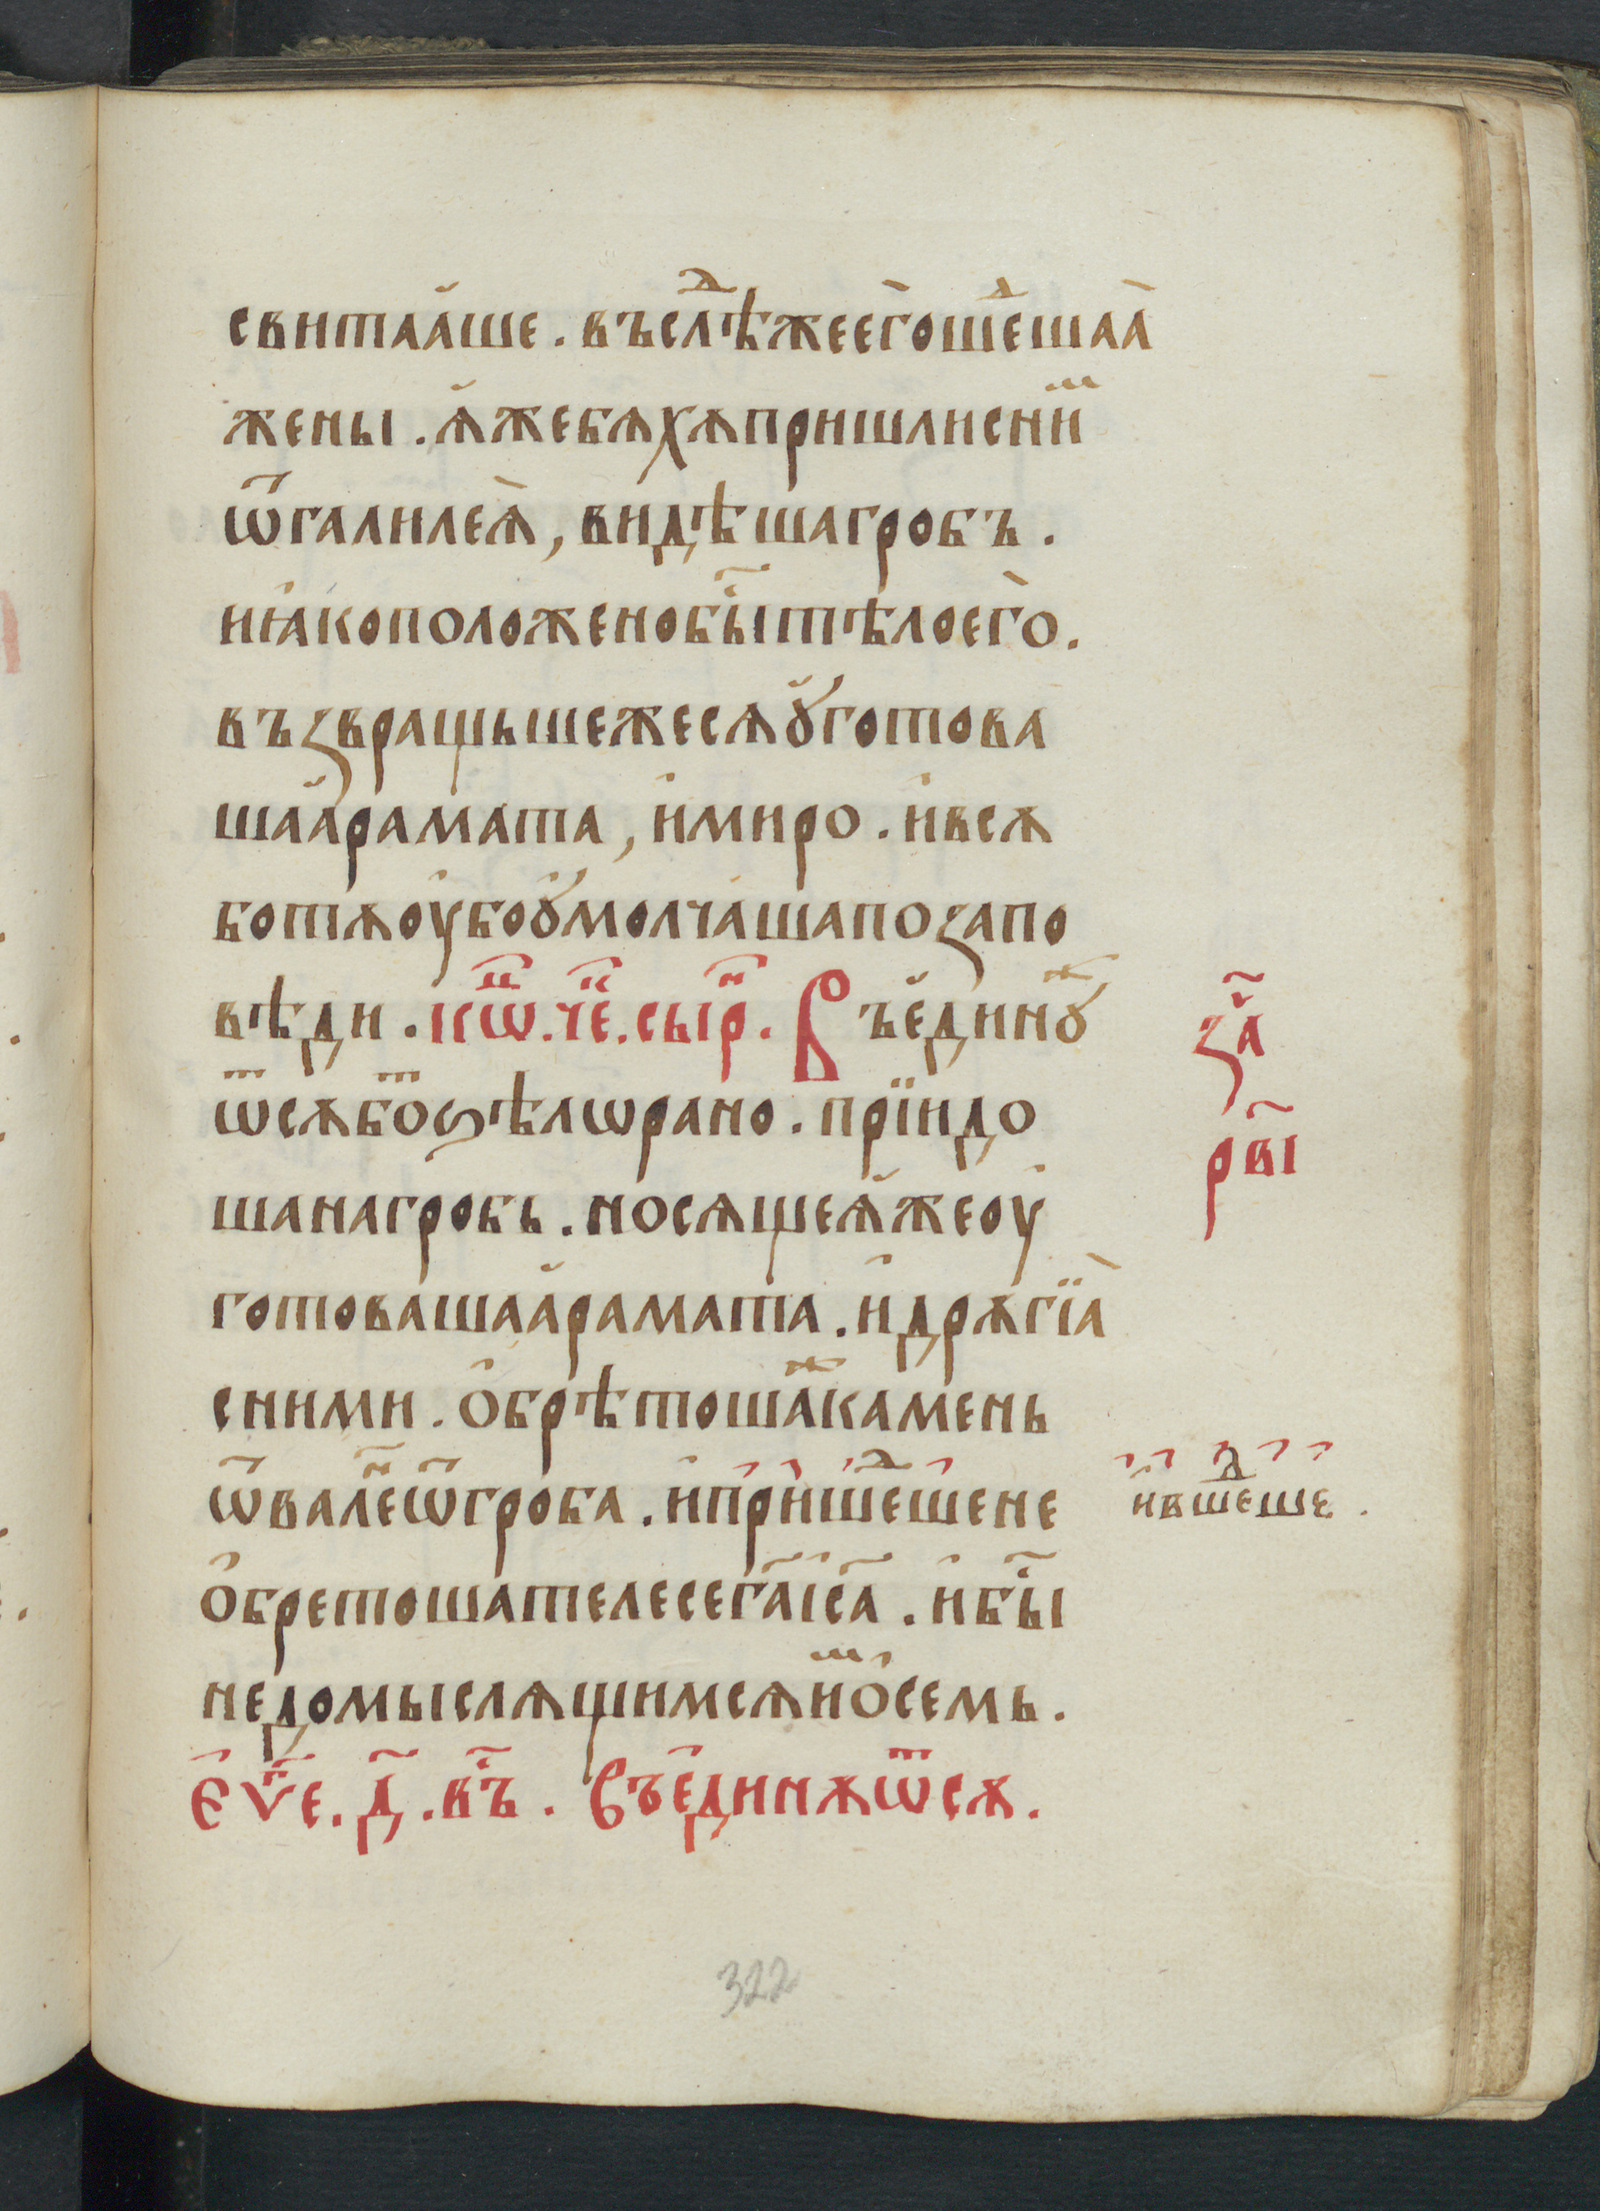 свитаӑше . въслѣⷣжеего̀шеⷣшаа̀
жены . ѧ҆жебѧхѫпришлисниⷨ
ѿгалилеѧ̀, видѣшагробъ .
иꙗ҆коположенобы҇тѣлоего̀ .
възвращьшежесѧꙋ҆готова
шаа҆рамата, и҆миро . и҆всѫ
ботѫоу҆боꙋ҆молчашапозапо
вѣди . кѡⷩ҇.че҇.сыр҇. Въе҆динꙋⷤ
ѿсѫбоⷮѕѣлѡрано . прїидо
шанагробь . носѧщеѧ҆жеоу
готовашаа҆рамата . и҆дрѫгїа̀
сними . О҆брѣтошаⷤкамень
ѿвалеⷩ҇ѿгроба . и҆пришеⷣшене
о҆бретошателесега҃іс҃а . и҆бы҇
недомыслѧщимсѧиⷨо҆семь .
Еѵⷢ҇е . д҃ . въ҇ . Въе҆динѫѿсѫ .
за҇
рв҃і
и҆вшеⷣше .
322